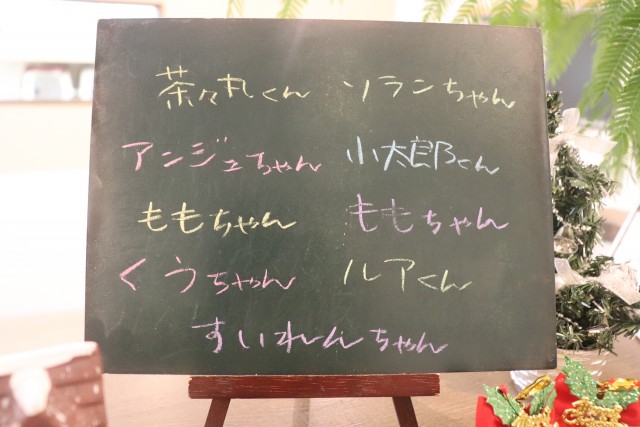 茶々丸くん ソランちゃん
アンジュちゃん 小太郎くん
ももちゃん ももちゃん
くうちゃん ルアくん
すいれんちゃん